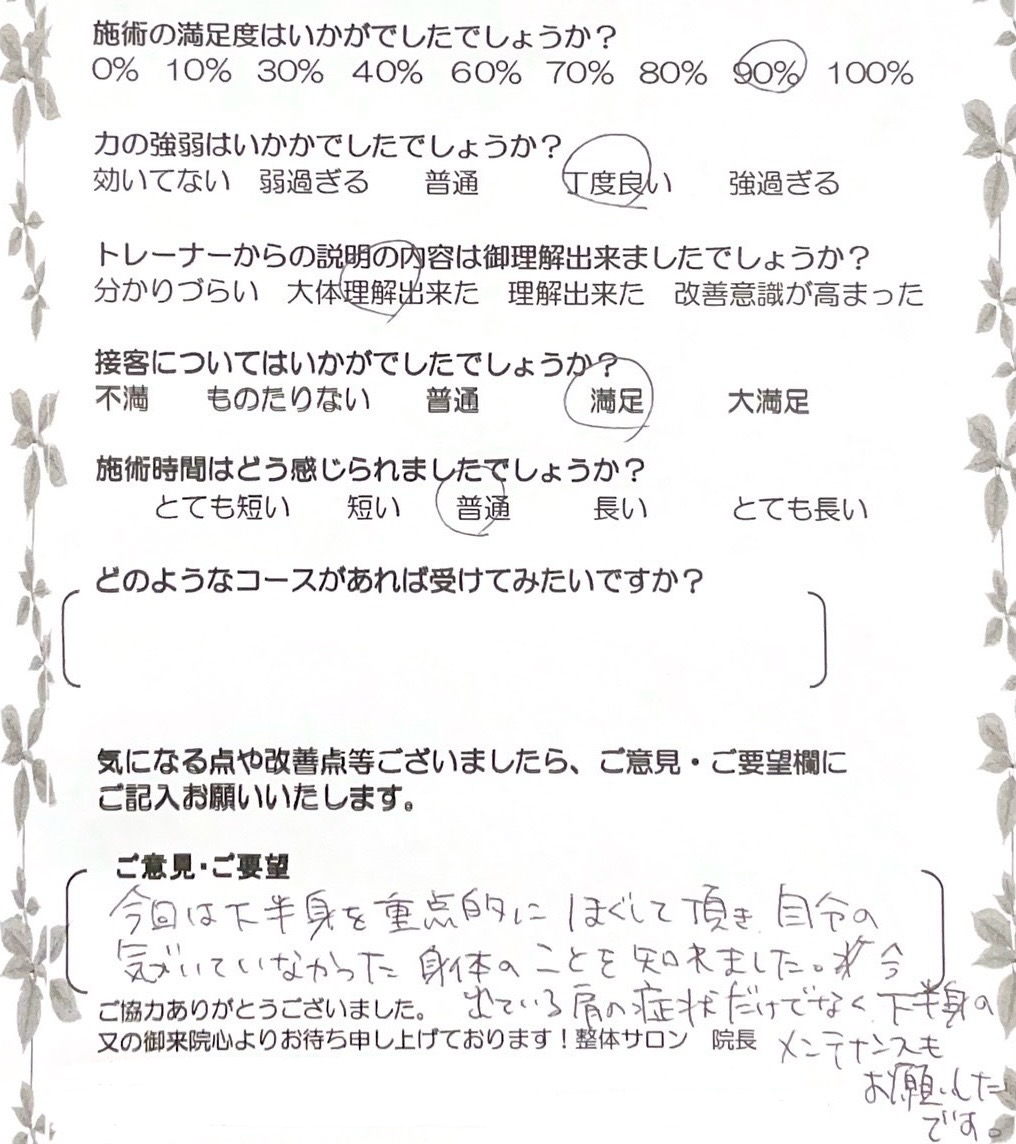 施術の満足度はいかがでしたでしょうか？
0% 10% 30% 40% 60% 70% 80% 90% 100%
力の強弱はいかかでしたでしょうか？
効いてない 弱過ぎる 普通 丁度良い 強過ぎる
トレーナーからの説明の内容は御理解出来ましたでしょうか？
分かりづらい 大体理解出来た 理解出来た 改善意識が高まった
接客についてはいかがでしたでしょうか？
不満 ものたりない 普通 満足 大満足
施術時間はどう感じられましたでしょうか？
とても短い 短い 普通 長い とても長い
どのようなコースがあれば受けてみたいですか？
気になる点や改善点等ございましたら、ご意見・ご要望欄に
ご記入お願いいたします。
ご意見・ご要望
今回は下半身を重点的にほぐして頂き、自分の
気づいていなかった身体のことを知れました。今
出ている肩の症状だけでなく、下半身の
メンテナンスも
お願いしたい
です。
ご協力ありがとうございました。
又の御来院心よりお待ち申し上げております！整体サロン 院長